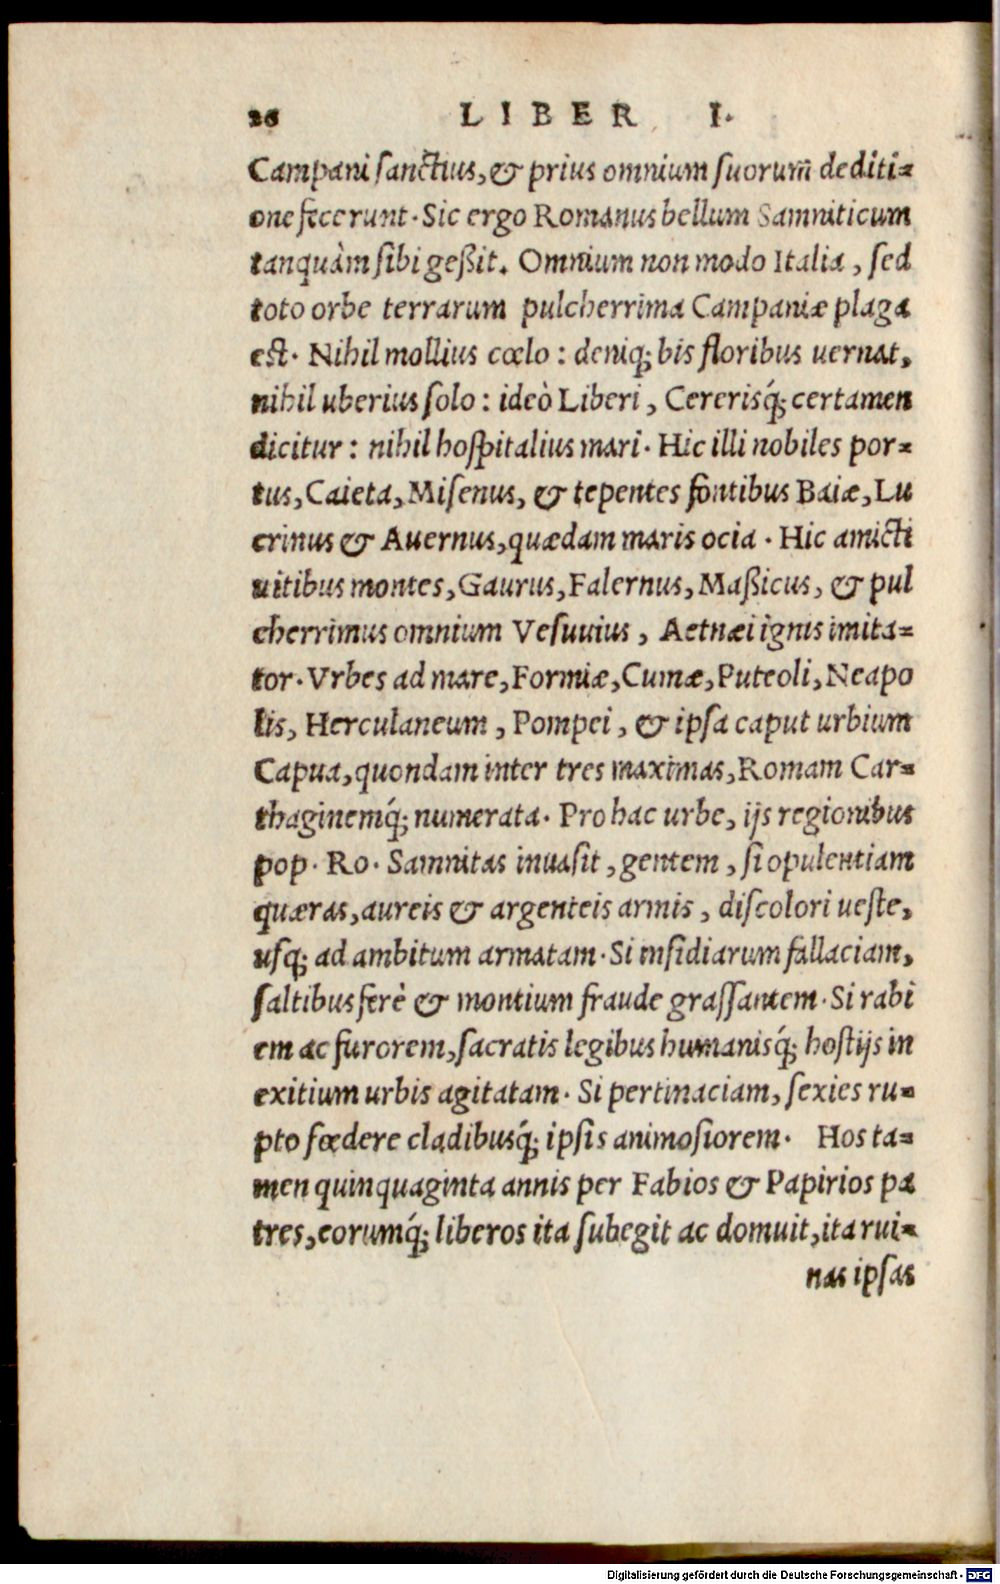 26 LIBER I.
Campani sanctius, & prius omnium suorum̃ dediti-
one fecerunt. Sic ergo Romanus bellum Samniticum
tanquàm sibi geßit. Omnium non modo Italia, sed
toto orbe terrarum pulcherrima Campaniæ plaga
est. Nihil mollius cœlo: deniq; bis floribus uernat,
nihil uberius solo: ideò Liberi, Cererisq́; certamen
dicitur: nihil hospitalius mari. Hic illi nobiles por-
tus, Caieta, Misenus, & tepentes fontibus Baiæ, Lu
crinus & Auernus, quædam maris ocia. Hic amicti
uitibus montes, Gaurus, Falernus, Maßicus, & pul
cherrimus omnium Vesuuius, Aetnæi ignis imita-
tor. Vrbes ad mare, Formiæ, Cumæ, Puteoli, Neapo
lis, Herculaneum, Pompei, & ipsa caput urbium
Capua, quondam inter tres maximas, Romam Car-
thaginemq́; numerata. Pro hac urbe, ijs regionibus
pop. Ro. Samnitas inuasit, gentem, si opulentiam
quæras, aureis & argenteis armis, discolori ueste,
usq; ad ambitum armatam. Si insidiarum fallaciam,
saltibus ferè & montium fraude grassantem. Si rabi
em ac furorem, sacratis legibus humanisq́; hostijs in
exitium urbis agitatam. Si pertinaciam, sexies ru-
pto fœdere cladibusq́; ipsis animosiorem. Hos ta-
men quinquaginta annis per Fabios & Papirios pa
tres, eorumq́; liberos ita subegit ac domuit, ita rui-
nas ipsas
Digitalisierung gefördert durch die Deutsche Forschungsgemeinschaft - DFG